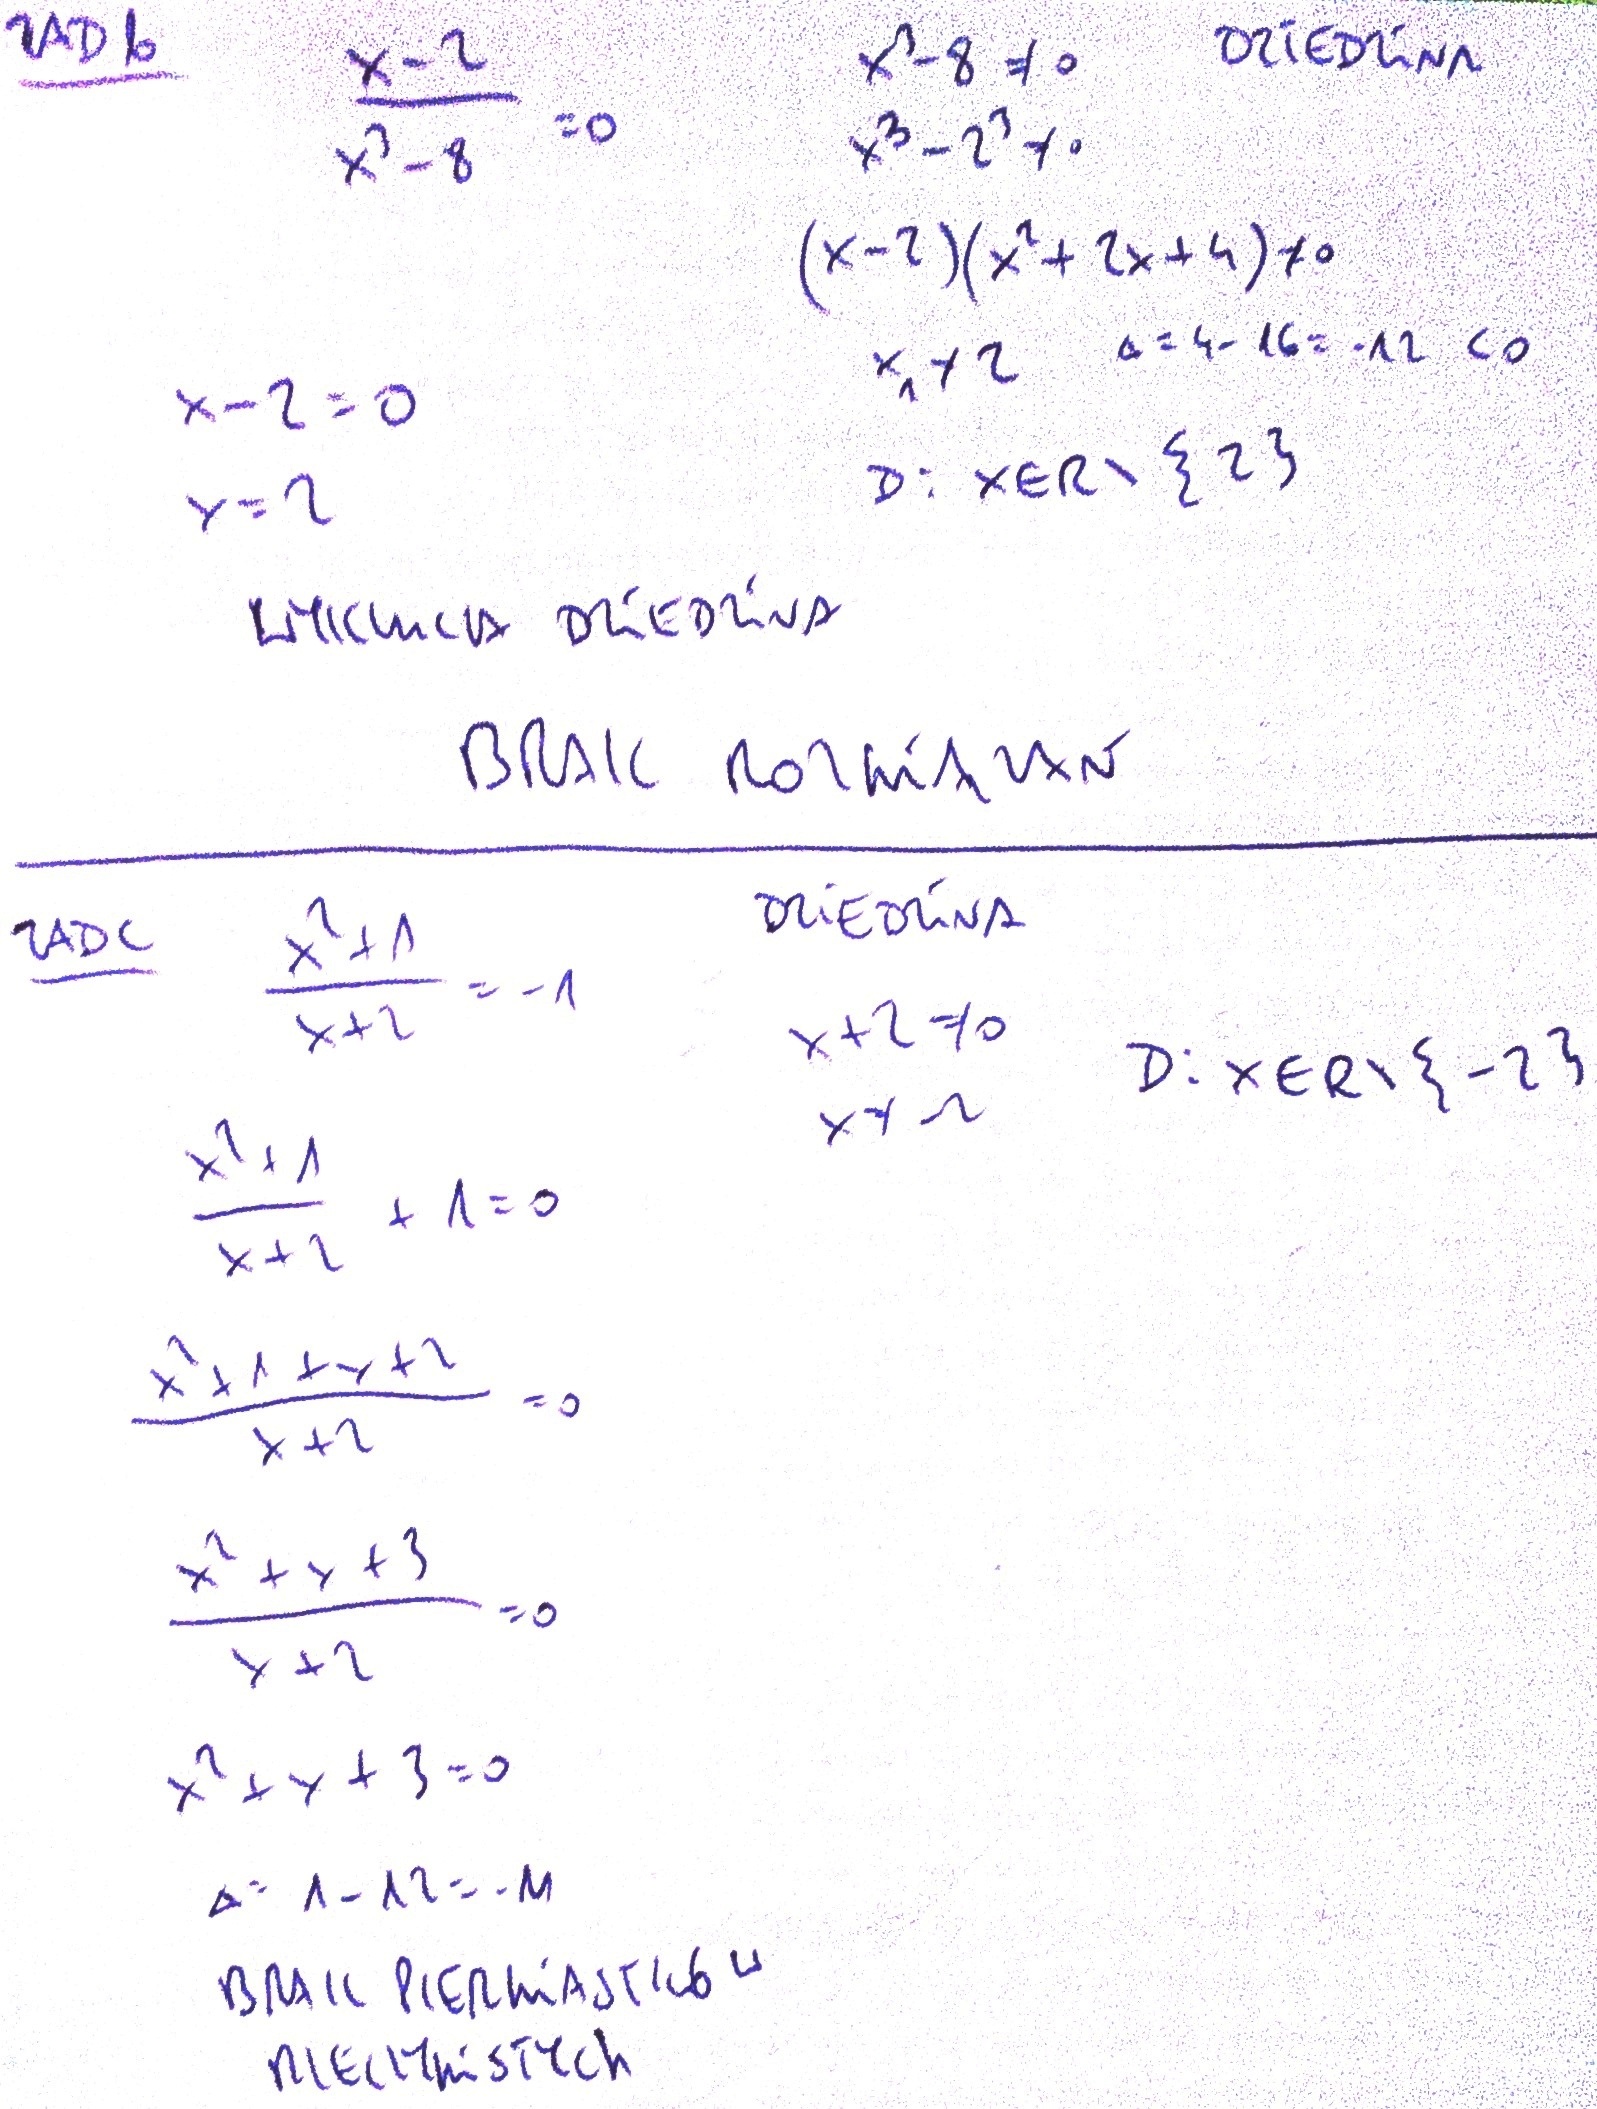 ZAD b
x-2 / x³-8 = 0
x³-8 ≠ 0 DZIEDZINA
x³-2³ ≠ 0
(x-2)(x²+2x+4) ≠ 0
x₁ ≠ 2 Δ = 4-16 = -12 < 0
D: x∈R \ {2}
x-2 = 0
x = 2
WYKLUCZA DZIEDZINA
BRAK ROZWIĄZAŃ
ZAD C
x²+1 / x+2 = -1
DZIEDZINA
x+2 ≠ 0
x ≠ -2
D: x∈R \ {-2}
x²+1 / x+2 + 1 = 0
x²+1+x+2 / x+2 = 0
x²+x+3 / x+2 = 0
x²+x+3 = 0
Δ = 1-12 = -11
BRAK PIERWIASTKÓW
RZECZYWISTYCH